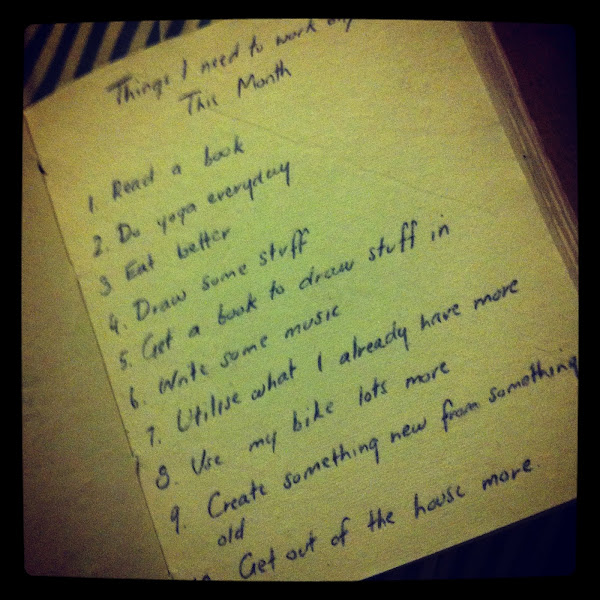 Things I need to work on
This Month
1. Read a book
2. Do yoga everyday
3 Eat better
4. Draw some stuff
5. Get a book to draw stuff in
6. Write some music
7. Utilise what I already have more
8. Use my bike lots more
9. Create something new from something
old
Get out of the house more.